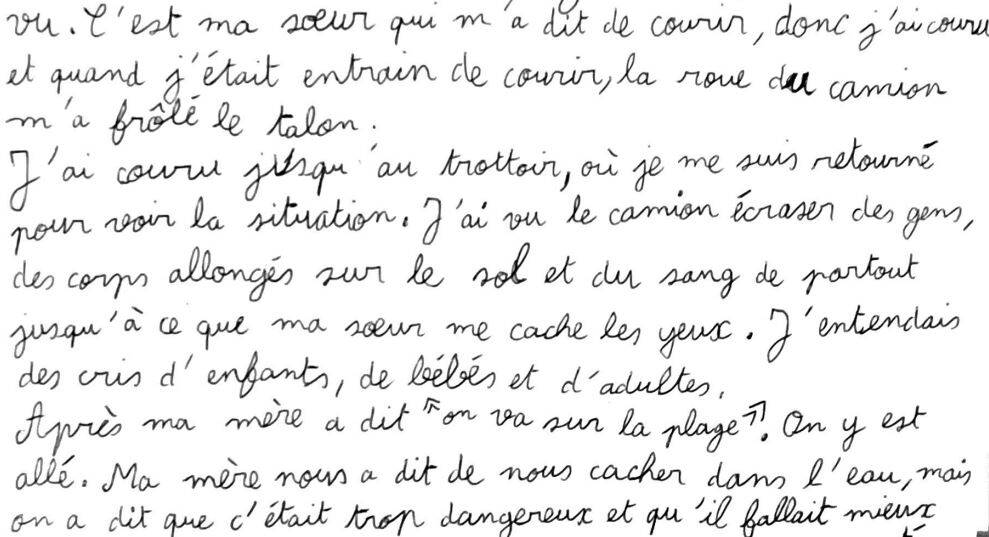 vu. C'est ma sœur qui m'a dit de courir, donc j'ai couru
et quand j'était entrain de courir, la roue du camion
m'a frôlé le talon.
J'ai couru jusqu'au trottoir, où je me suis retourné
pour voir la situation. J'ai vu le camion écraser des gens,
des corps allongés sur le sol et du sang de partout
jusqu'à ce que ma sœur me cache les yeux. J'entendais
des cris d'enfants, de bébés et d'adultes.
Après ma mère a dit "on va sur la plage". On y est
allé. Ma mère nous a dit de nous cacher dans l'eau, mais
on a dit que c'était trop dangereux et qu'il fallait mieux